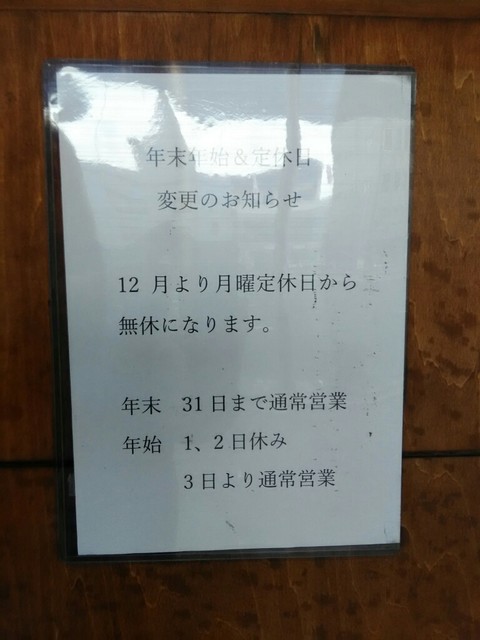 年末年始＆定休日
変更のお知らせ
12 月より月曜定休日から
無休になります。
年末　31日まで通常営業
年始　1、2日休み
3日より通常営業